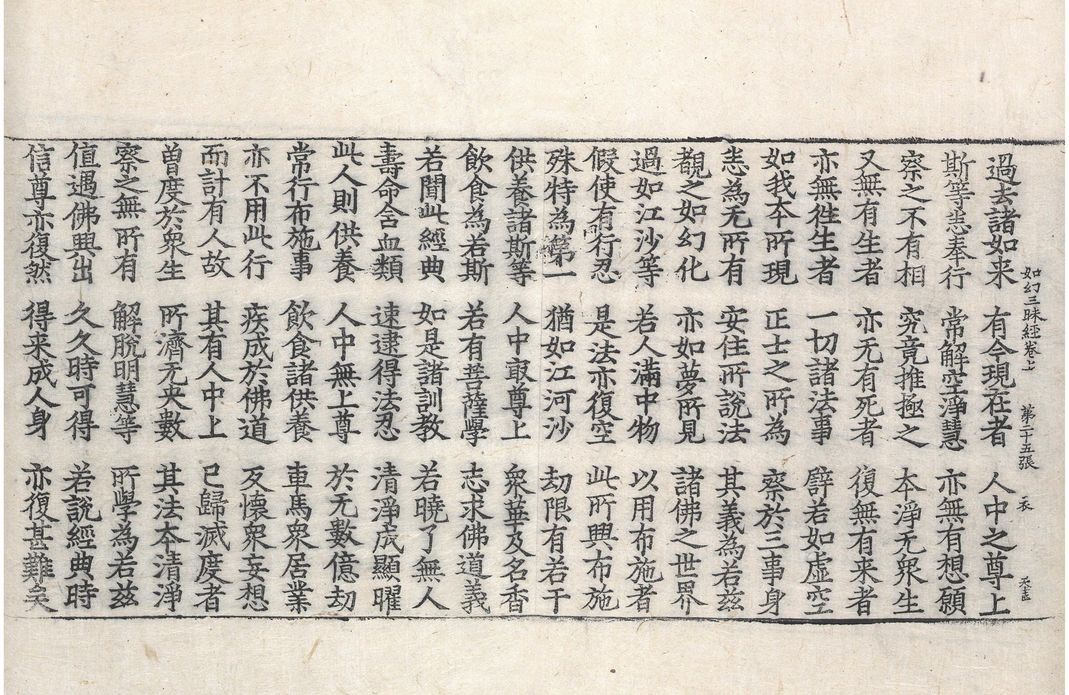 如幻三昧經卷上 第二十五張 衣
過去諸如来 有今現在者 人中之尊上
斯等悉奉行 常解空淨慧 亦無有想願
察之不有相 究竟推極之 本淨无衆生
又無有生者 亦无有死者 復無有来者
亦無徃生者 一切諸法事 譬若如虚空
如我本所現 正士之所為 察於三事身
恙為无所有 安住所說法 其義為若茲
覩之如幻化 亦如夢所見 諸佛之世界
過如江沙等 若人滿中物 以用布施者
假使有行忍 是法亦復空 此所興布施
殊特為第一 猶如江河沙 劫限有若干
供養諸斯等 人中㝡尊上 衆華及名香
飲食為若斯 若有菩薩學 志求佛道義
若聞此經典 如是諸訓教 若曉了無人
壽命含血類 速逮得法忍 清淨成顯曜
此人則供養 人中無上尊 於无數億劫
常行布施事 飲食諸供養 車馬衆居業
亦不用此行 疾成於佛道 反懷衆妄想
而計有人故 其有人中上 已歸滅度者
曾度於衆生 所濟无央數 其法本清淨
察之無所有 解脫明慧等 所學為若茲
值遇佛興出 久久時可得 若說經典時
信尊亦復然 得来成人身 亦復甚難矣